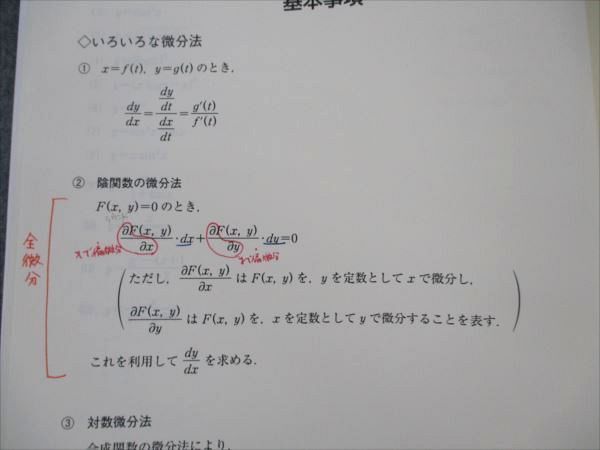 基本事項
◇いろいろな微分法
① x=f(t), y=g(t) のとき,
dy/dx = (dy/dt)/(dx/dt) = g′(t)/f′(t)
② 陰関数の微分法
F(x, y)=0 のとき,
∂F(x, y)/∂x · dx + ∂F(x, y)/∂y · dy = 0
xで偏微分
yで偏微分
全微分
(ただし, ∂F(x, y)/∂x は F(x, y) を, y を定数として x で微分し,
∂F(x, y)/∂y は F(x, y) を, x を定数として y で微分することを表す.)
これを利用して dy/dx を求める.
③ 対数微分法
合成関数の微分法により,